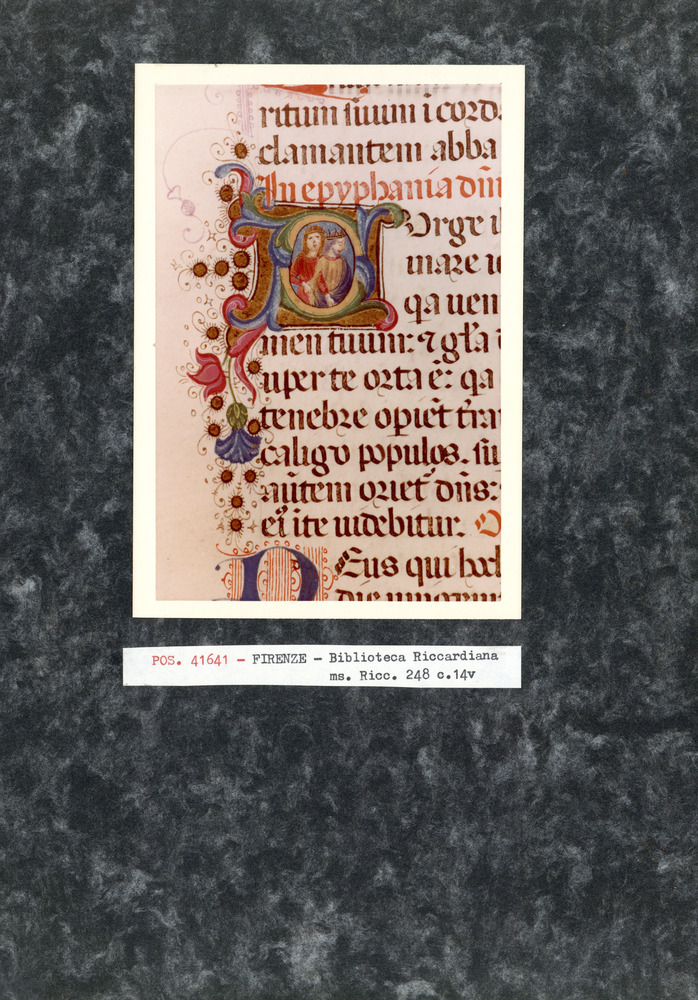 ritum suum i cord
clamantem abba
In epyphania dni
Surge il
nare ie
qa uen
men tuum: ⁊ gła
uper te orta ē: qa
tenebre opiet t̄ra
caligo populos. su
autem oriet̄ dn̄s:
et i te uidebitur.
Deus qui hod
POS. 41641 - FIRENZE - Biblioteca Riccardiana
ms. Ricc. 248 c.14v